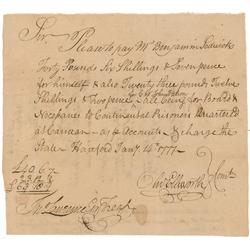 Sir, Please to pay Mr Benjamin Sedwick
Forty Pounds Six Shillings & Seven pence
for himself & also Twenty three pound, Twelve
Shillings & two pence, all being for Board &
to Continental Prisoners Quarterd
at Canaan as Accounts & charge the
State Hartford Jany 14th 1777
40 6 7
23 12 2
£63 18 9
Ellsworth Comtt
Jno Lawrence Esqr Treasr